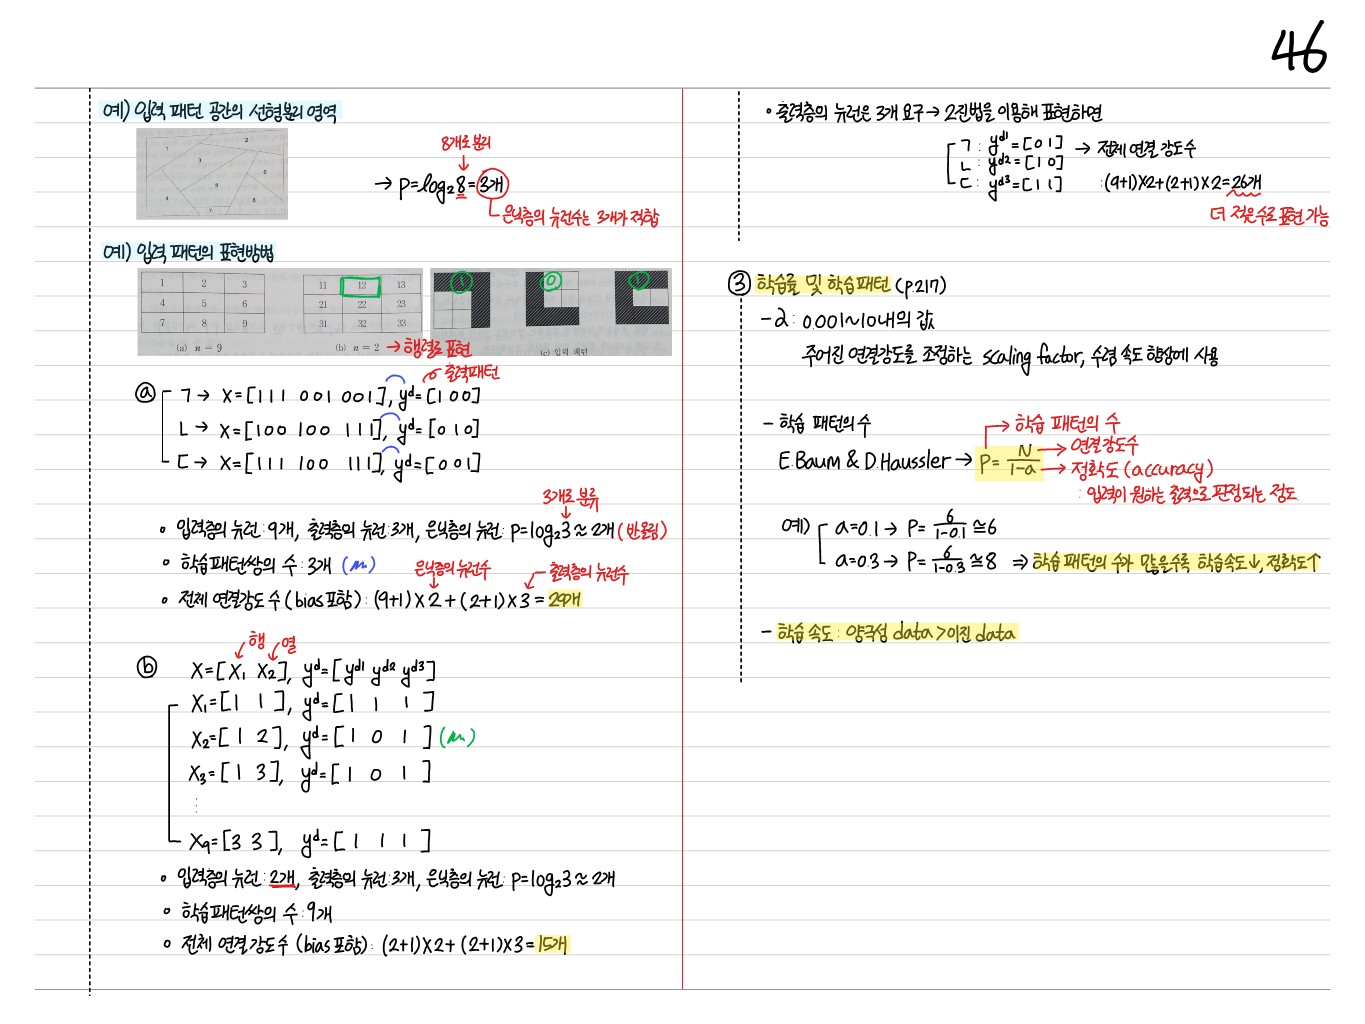 46
예) 입력 패턴 공간의 선형분리 영역
1 2 3 4 5 6 7 8
8개로 분리
→ P=log₂8=3개
은닉층의 뉴런수는 3개가 적합
예) 입력 패턴의 표현방법
1 2 3
4 5 6
7 8 9
(a) n = 9
11 12 13
21 22 23
31 32 33
(b) n = 2 → 행렬로 표현
1 0 1
(c) 입력 패턴
출력패턴
ⓐ ㄱ → X=[111 001 001], yᵈ=[100]
ㄴ → X=[100 100 111], yᵈ=[010]
ㄷ → X=[111 100 111], yᵈ=[001]
3개로 분류
∘ 입력층의 뉴런: 9개, 출력층의 뉴런: 3개, 은닉층의 뉴런: P=log₂3≈2개 (반올림)
∘ 학습패턴쌍의 수: 3개
은닉층의 뉴런수 출력층의 뉴런수
∘ 전체 연결강도 수 (bias 포함): (9+1)×2+(2+1)×3=29개
행 열
ⓑ X=[X₁ X₂], yᵈ=[yᵈ¹ yᵈ² yᵈ³]
X₁=[1 1], yᵈ=[1 1 1]
X₂=[1 2], yᵈ=[1 0 1]
X₃=[1 3], yᵈ=[1 0 1]
⋮
X₉=[3 3], yᵈ=[1 1 1]
∘ 입력층의 뉴런: 2개, 출력층의 뉴런: 3개, 은닉층의 뉴런: P=log₂3≈2개
∘ 학습패턴쌍의 수: 9개
∘ 전체 연결강도 수 (bias 포함): (2+1)×2+(2+1)×3=15개
∘ 출력층의 뉴런은 3개 요구 → 2진법을 이용해 표현하면
ㄱ: yᵈ¹=[01] → 전체 연결 강도수
ㄴ: yᵈ²=[10]
ㄷ: yᵈ³=[11] : (9+1)×2+(2+1)×2=26개
더 적은수로 표현 가능
③ 학습률 및 학습패턴 (p.217)
- α: 0.001~10 내의 값
주어진 연결강도를 조정하는 scaling factor, 수렴 속도 향상에 사용
- 학습 패턴의 수
→ 학습 패턴의 수
E.Baum & D.Haussler → P=N/(1-a)
→ 연결강도수
→ 정확도 (accuracy)
: 입력이 원하는 출력으로 판정되는 정도
예) a=0.1 → P=6/(1-0.1)≅6
a=0.3 → P=6/(1-0.3)≅8 ⇒ 학습 패턴의 수가 많을수록 학습속도↓, 정확도↑
- 학습 속도: 양극성 data>이진 data